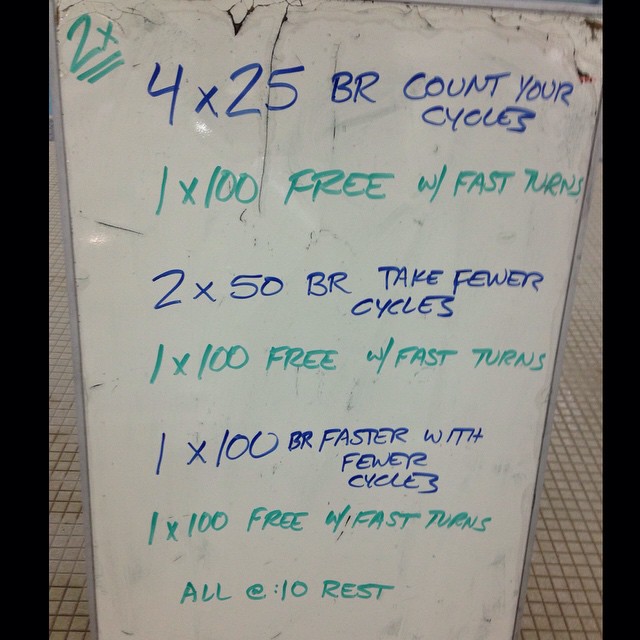 2x
4 x 25 BR COUNT YOUR
CYCLES
1 x 100 FREE w/ FAST TURNS
2 x 50 BR TAKE FEWER
CYCLES
1 x 100 FREE w/ FAST TURNS
1 x 100 BR FASTER WITH
FEWER
CYCLES
1 x 100 FREE w/ FAST TURNS
ALL @ :10 REST